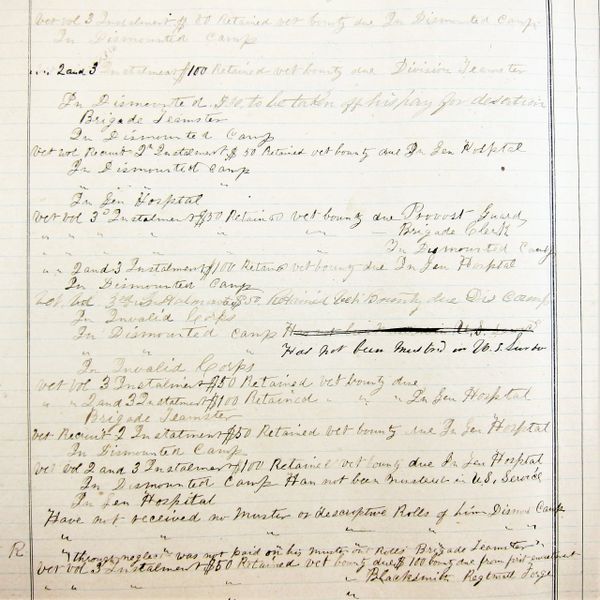 Vet vol 3 Instalment $50 Retained vet bounty due In Dismounted Camp
In Dismounted Camp
" " 2 and 3 Instalment $100 Retained vet bounty due Division Teamster
In Dismounted to be taken off his pay for desertion
Brigade Teamster
In Dismounted Camp
Vet vol Recruit 2d Instalment $50 Retained vet bounty due In Gen Hospital
In Dismounted Camp
" " "
In Gen Hospital
Vet vol 3d Instalment $50 Retained vet bounty due Provost Guard
" " " " " " " Brigade Clerk
In Dismounted Camp
" " 2 and 3 Instalment $100 Retained vet bounty due In Gen Hospital
In Dismounted Camp
Vet Vol $50 Retained Vet Bounty due Camp
In Invalid Corps
In Dismounted Camp
Has not been Mustrd in U.S.
" "
In Invalid Corps
Vet vol 3 Instalment $50 Retained Vet bounty due
" " 2 and 3 Instalment $100 Retained " " " In Gen Hospital
Brigade Teamster
Vet Recruit 2 Instalment $50 Retained vet bounty due In Gen Hospital
In Dismounted Camp
Vet Vol 2 and 3 Instalment $100 Retained vet bounty due In Gen Hospital
In Dismounted Camp Has not been mustered in U.S. Service
In Gen Hospital
Have not received no Muster or descriptive Rolls of him Camp
" " " " "
R " through neglect was not paid on his muster out Rolls Brigade Teamster
Vet Vol 3 Instalment $50 Retained vet bounty due $100 bounty due from first enrollment
" " " Blacksmith Regtmntl Forge